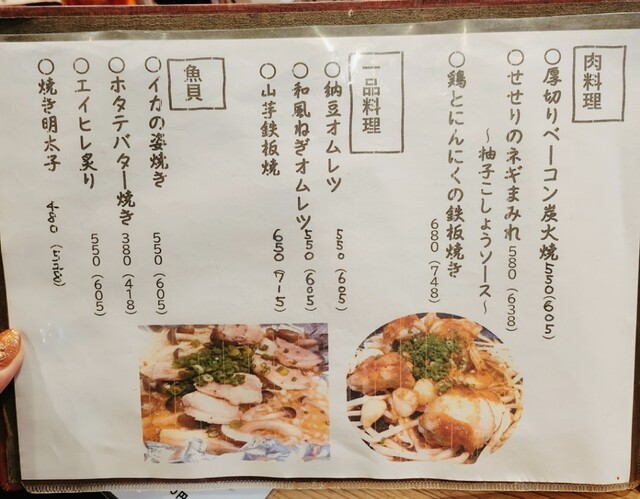 肉料理
○厚切りベーコン炭火焼 550(605)
○せせりのネギまみれ 580(638)
～柚子こしょうソース～
○鶏とにんにくの鉄板焼き 680(748)
一品料理
○納豆オムレツ 550(605)
○和風ねぎオムレツ 550(605)
○山芋鉄板焼 650(715)
魚貝
○イカの姿焼き 550(605)
○ホタテバター焼き 380(418)
○エイヒレ炙り 550(605)
○焼き明太子 480